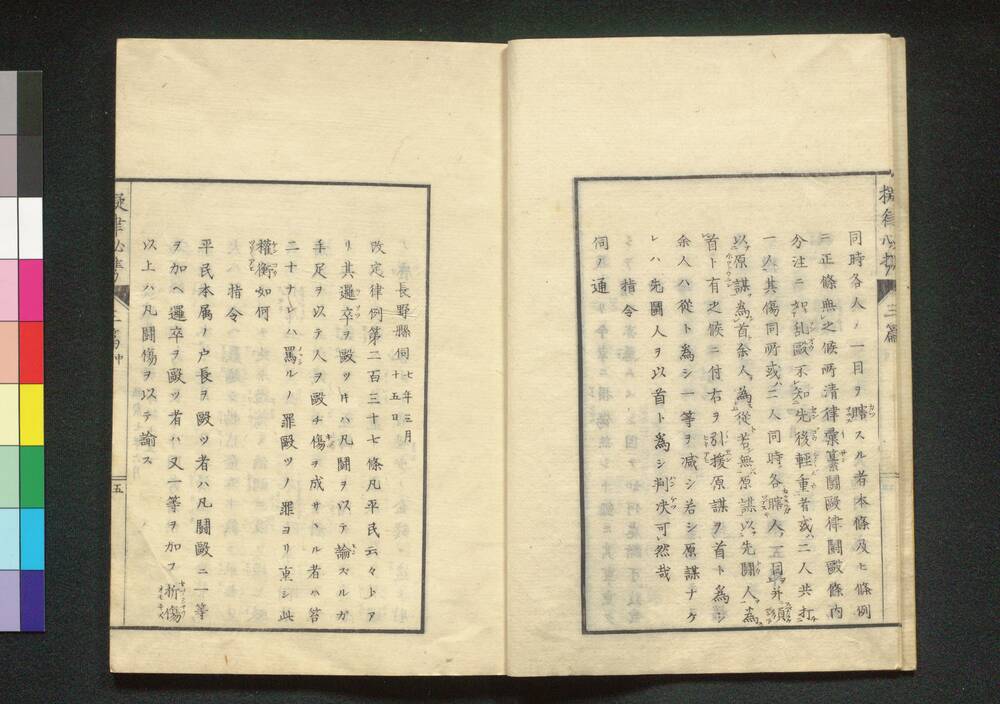 同時各人ノ一目ヲ瞎スル者本條及ヒ條例
ニ正條無之候所清律彙纂鬪毆律鬪毆條内
分注ニ如乱毆不知先後輕重者或二人共打
一人其傷同所或二人同時各瞎人一目並須
以原謀為首余人為從若無原謀以先鬪人為
首ト有之候ニ付右ヲ引援原謀ヲ首ト為シ
余人ハ從ト為シ一等ヲ减シ若シ原謀ナケ
レハ先鬪人ヲ以首ト為シ判决可然哉
指令
伺ノ通
三篇
長野縣伺 七年三月十五日
改定律例第二百三十七條凡平民云々トア
リ其邏卒ヲ毆ツ時ハ凡鬪ヲ以テ論スルカ
手足ヲ以テ人ヲ毆チ傷ヲ成サヽル者ハ笞
二十ナレハ罵ルノ罪毆ツノ罪ヨリ重シ此
權衡如何
指令
平民本属ノ户長ヲ毆ツ者ハ凡鬪毆ニ一等
ヲ加ヘ邏卒ヲ毆ツ者ハ又一等ヲ加フ折傷
以上ハ凡鬪傷ヲ以テ論ス
五